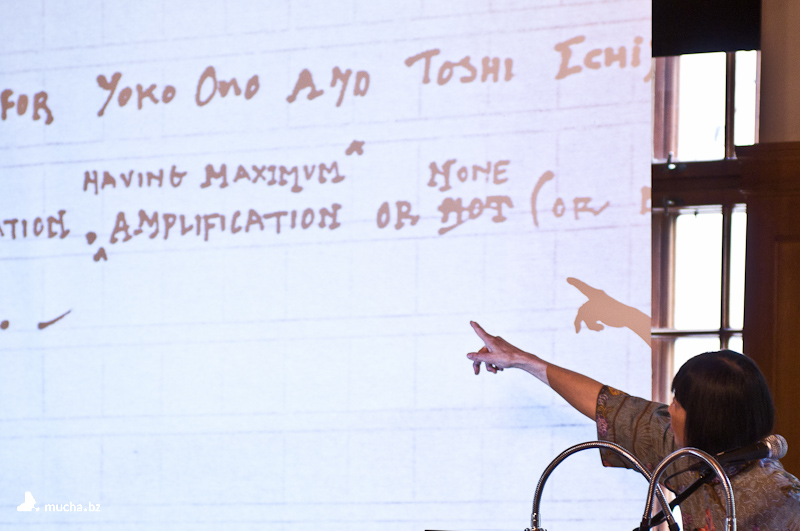 FOR YOKO ONO AND TOSHI ICHI
HAVING MAXIMUM NONE
ATION, AMPLIFICATION OR NOT (OR
mucha.bz